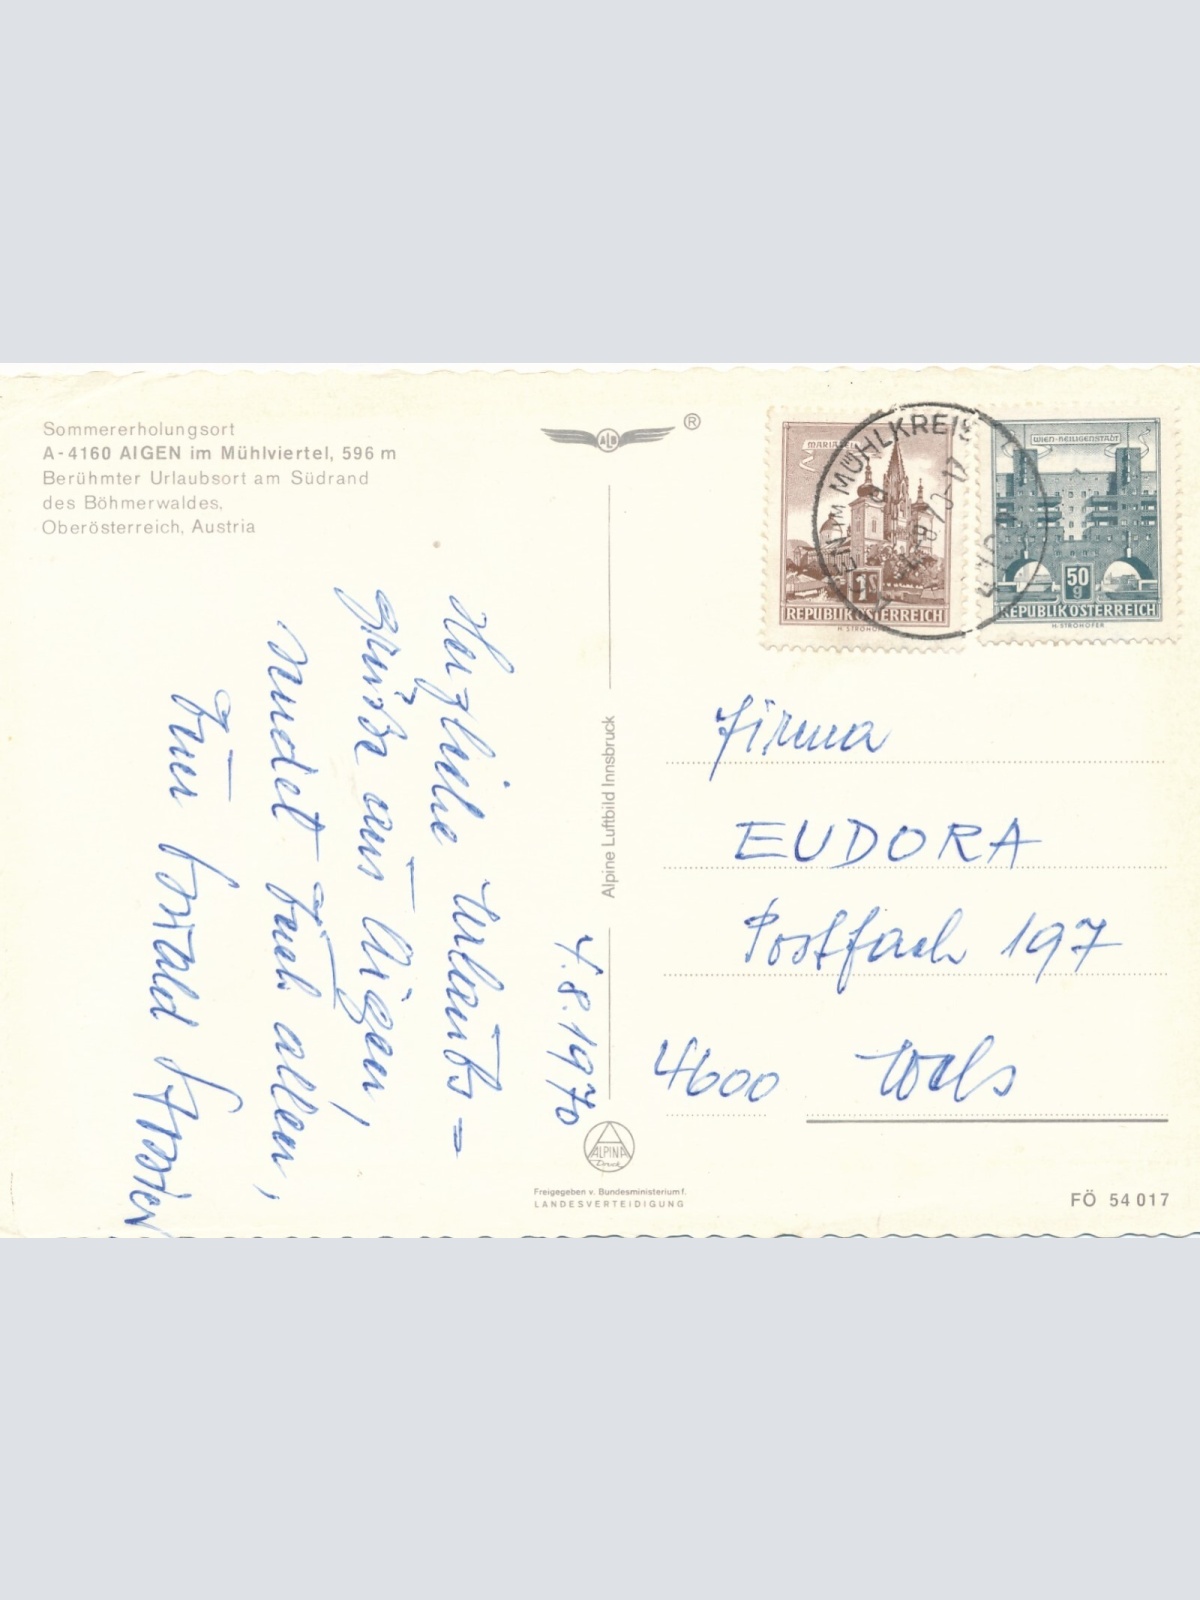 Sommererholungsort
A-4160 AIGEN im Mühlviertel, 596 m
Berühmter Urlaubsort am Südrand
des Böhmerwaldes,
Oberösterreich, Austria
4.8.1970
Herzliche Urlaubs=
grüße aus Aigen,
sendet Euch allen,
Euer
ALPINA
Druck
Freigegeben v. Bundesministerium f.
LANDESVERTEIDIGUNG
Alpine Luftbild Innsbruck
®
MARIAZELL
1S
REPUBLIK ÖSTERREICH
H. STROHOFER
WIEN-HEILIGENSTADT
50
g
REPUBLIK ÖSTERREICH
H. STROHOFER
IM MÜHLKREIS
Firma
EUDORA
Postfach 197
4600 Wels
FÖ 54 017